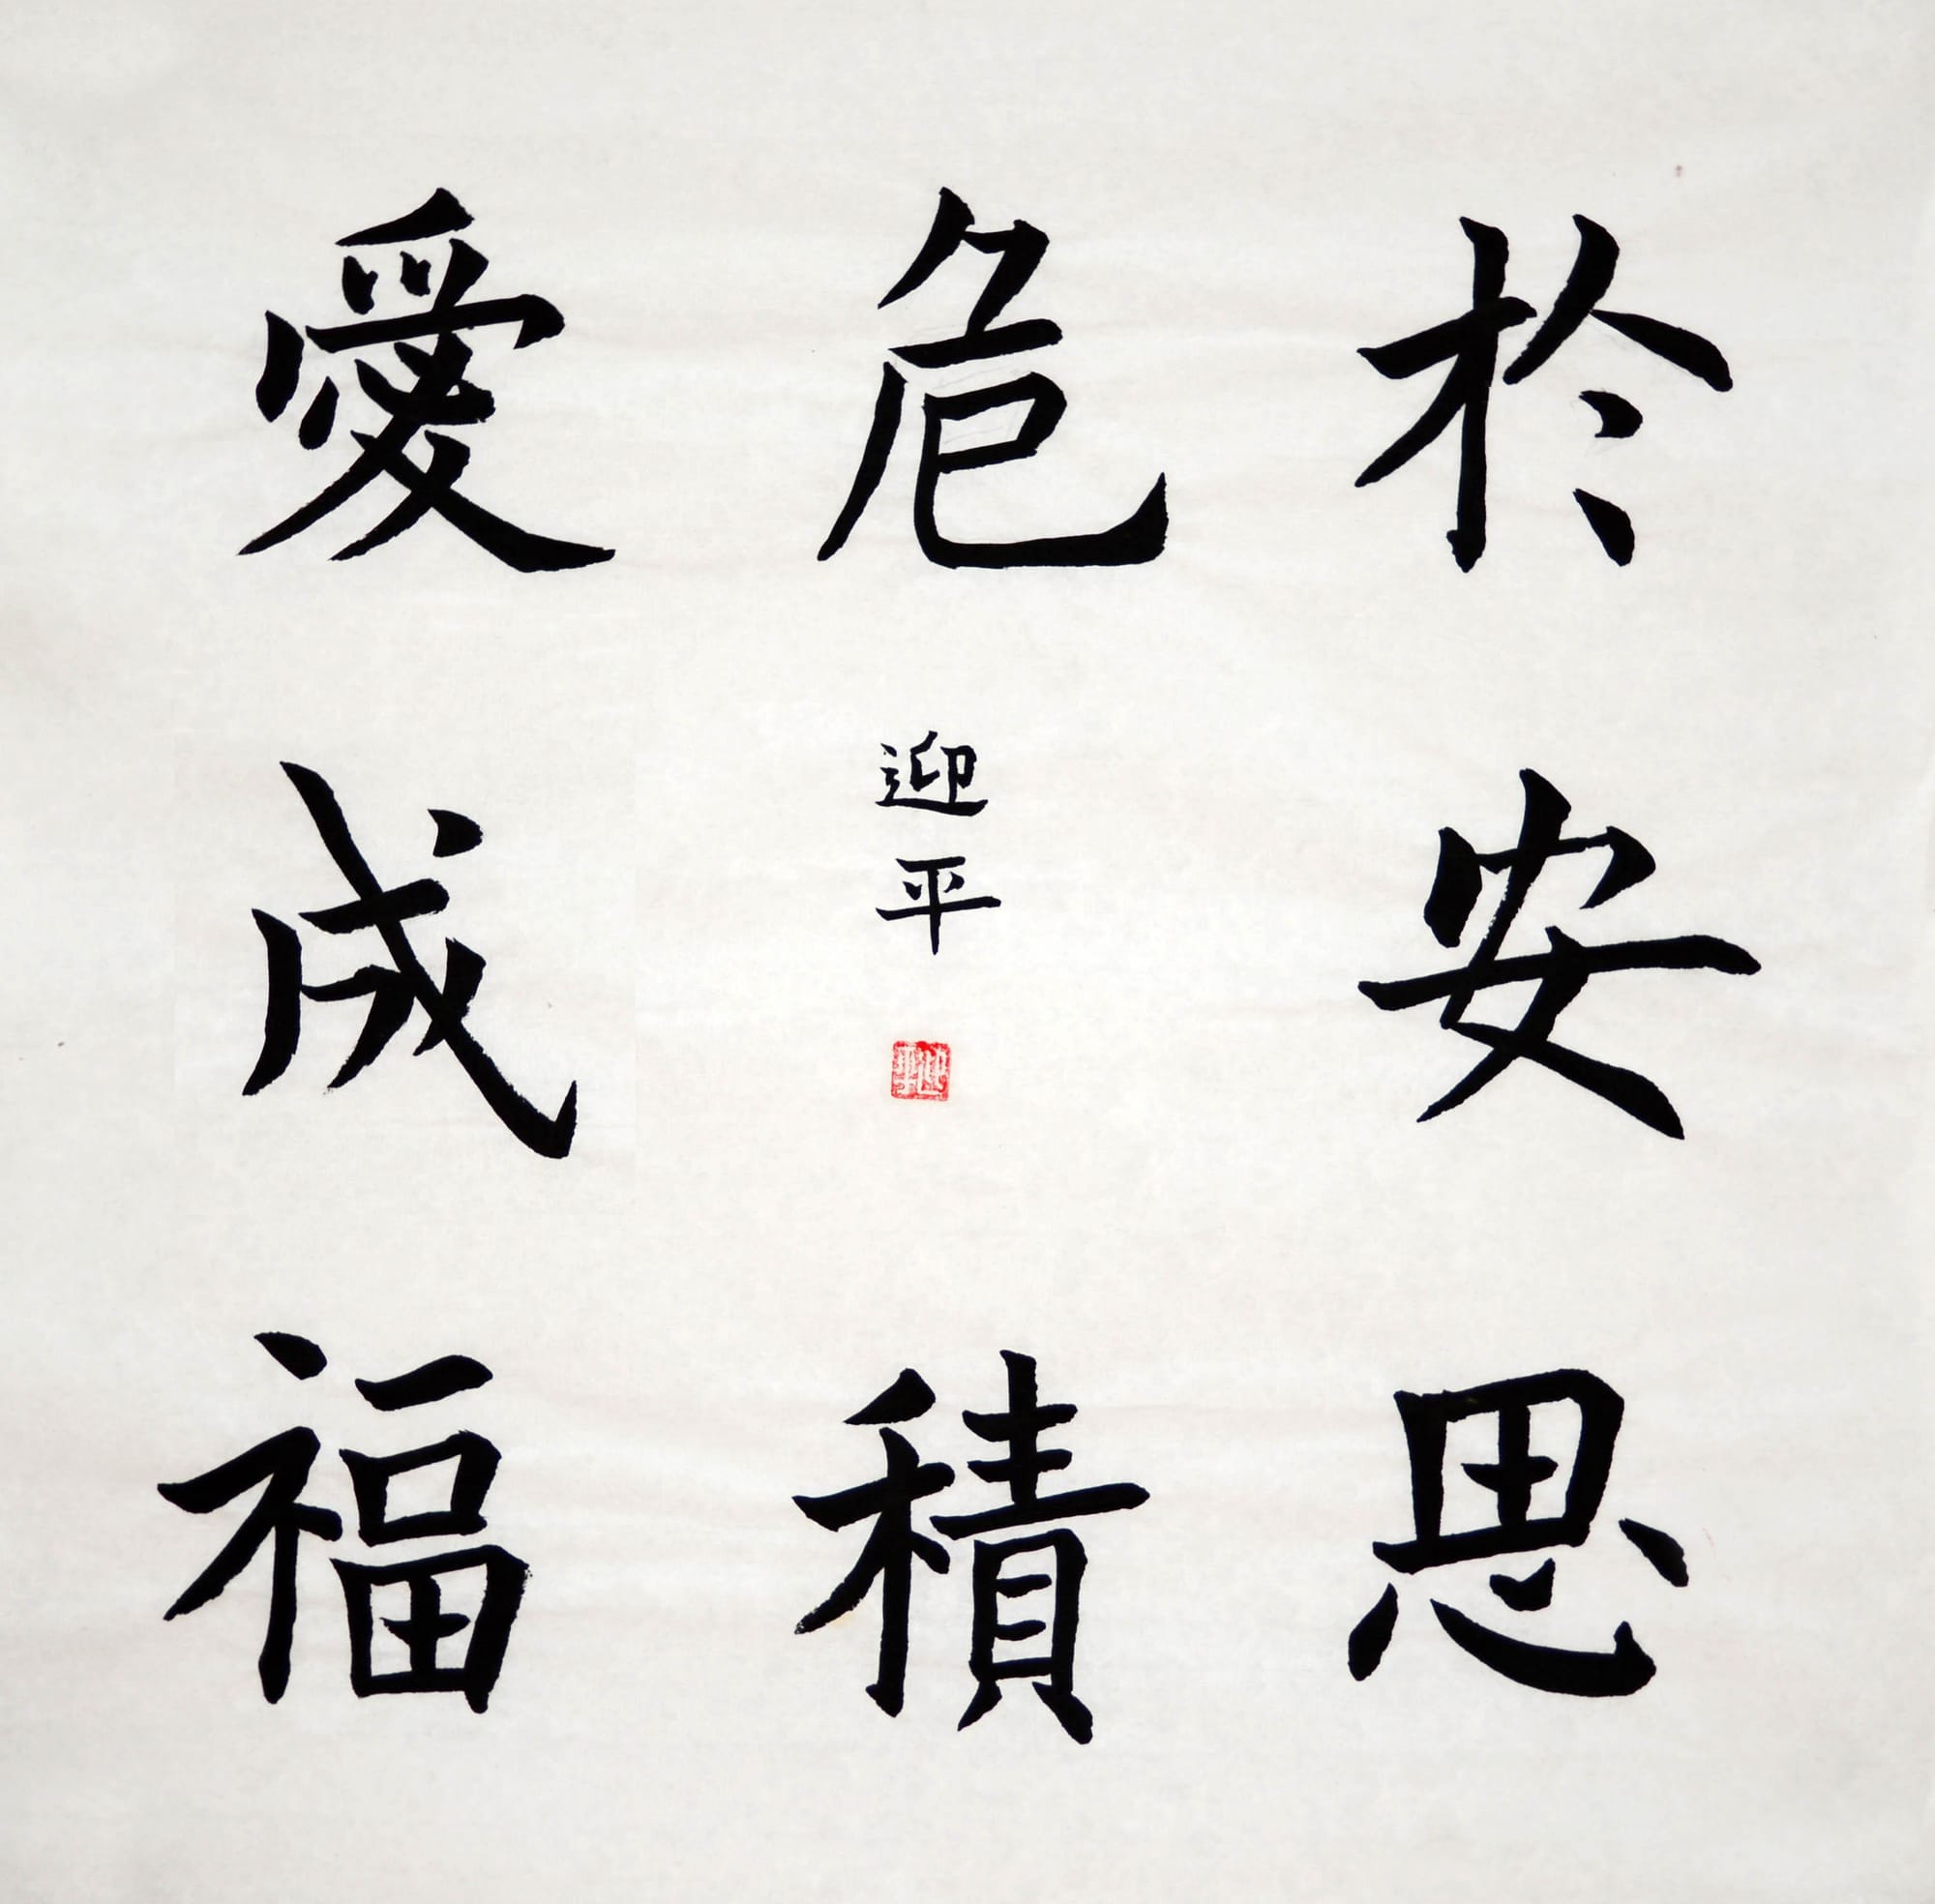 於安思
危積
愛成福
迎平
迎平